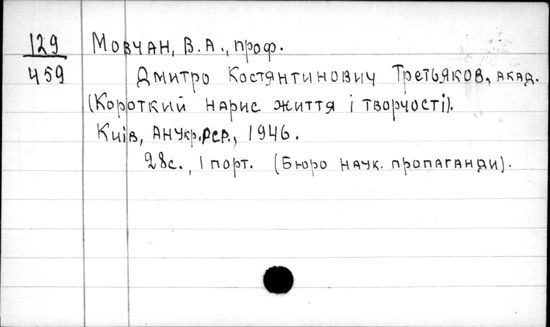 129 Мовчан, В.А., проф.
459 Дмитро Костянтинович Третьяков, акад.
(Короткий нарис життя і творчості).
Київ, АН Укр.РСР., 1946.
28с., 1 порт. (Бюро наук. пропаганди).